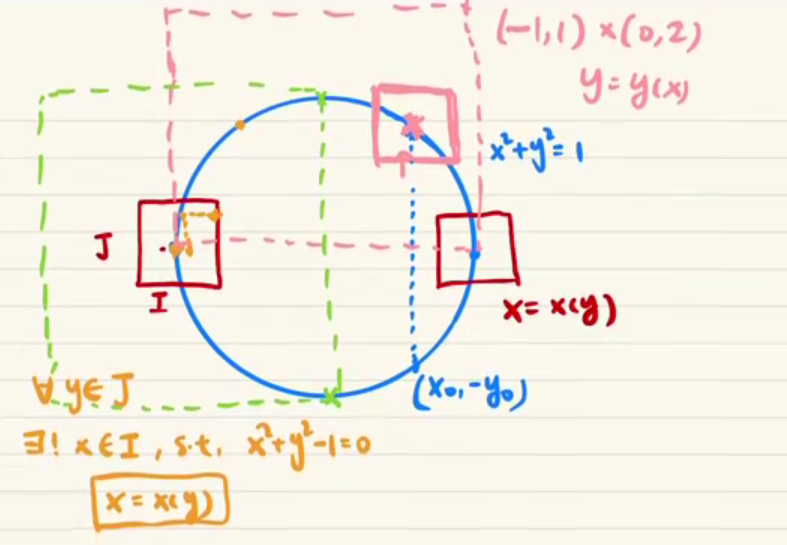 (-1,1) × (0,2)
y = y(x)
x²+y²=1
J
I
x = x(y)
(x₀, -y₀)
∀ y ∈ J
∃! x ∈ I, s.t. x²+y²-1=0
x = x(y)